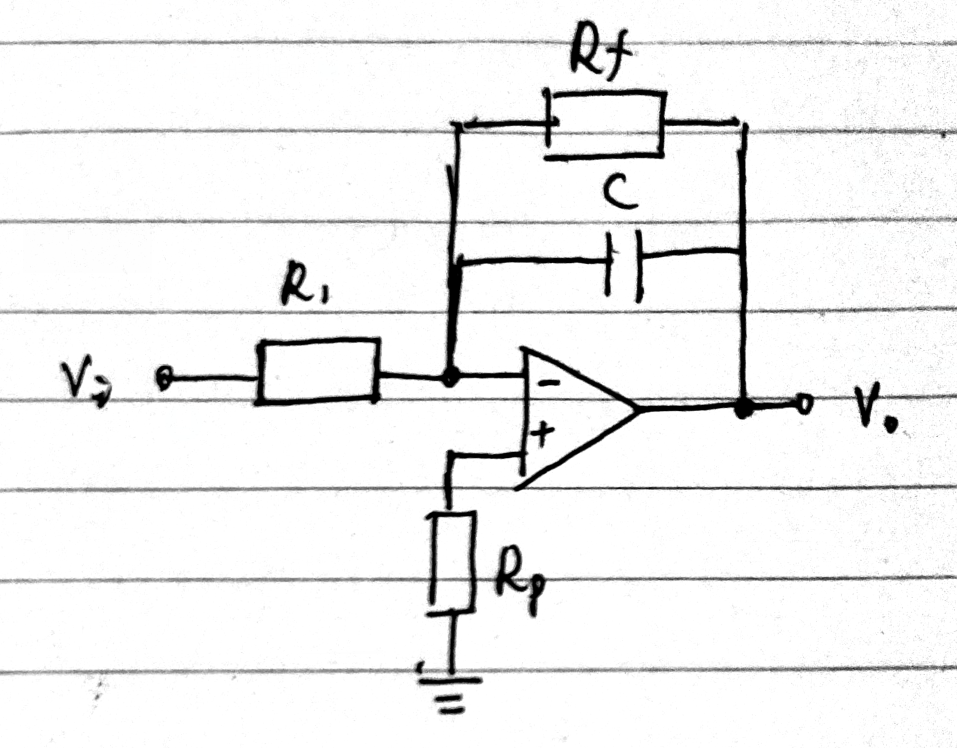 Rf
C
R1
Vi
-
Vo
+
Rp